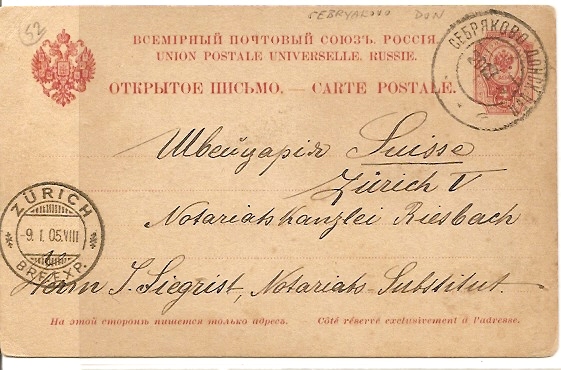 52
SEBRYAKOVO DON
ВСЕМІРНЫЙ ПОЧТОВЫЙ СОЮЗЪ. РОССІЯ.
UNION POSTALE UNIVERSELLE. RUSSIE.
ОТКРЫТОЕ ПИСЬМО. — CARTE POSTALE.
СЕБРЯКОВО ДОНСК.
Швейцарія Suisse
Zürich V
Notariatskanzlei Riesbach
ZÜRICH
-9. I. 05. VIII
BRF. EXP.
Herrn J. Siegrist, Notariats-Substitut.
На этой сторонѣ пишется только адресъ. — Côté réservé exclusivement à l'adresse.